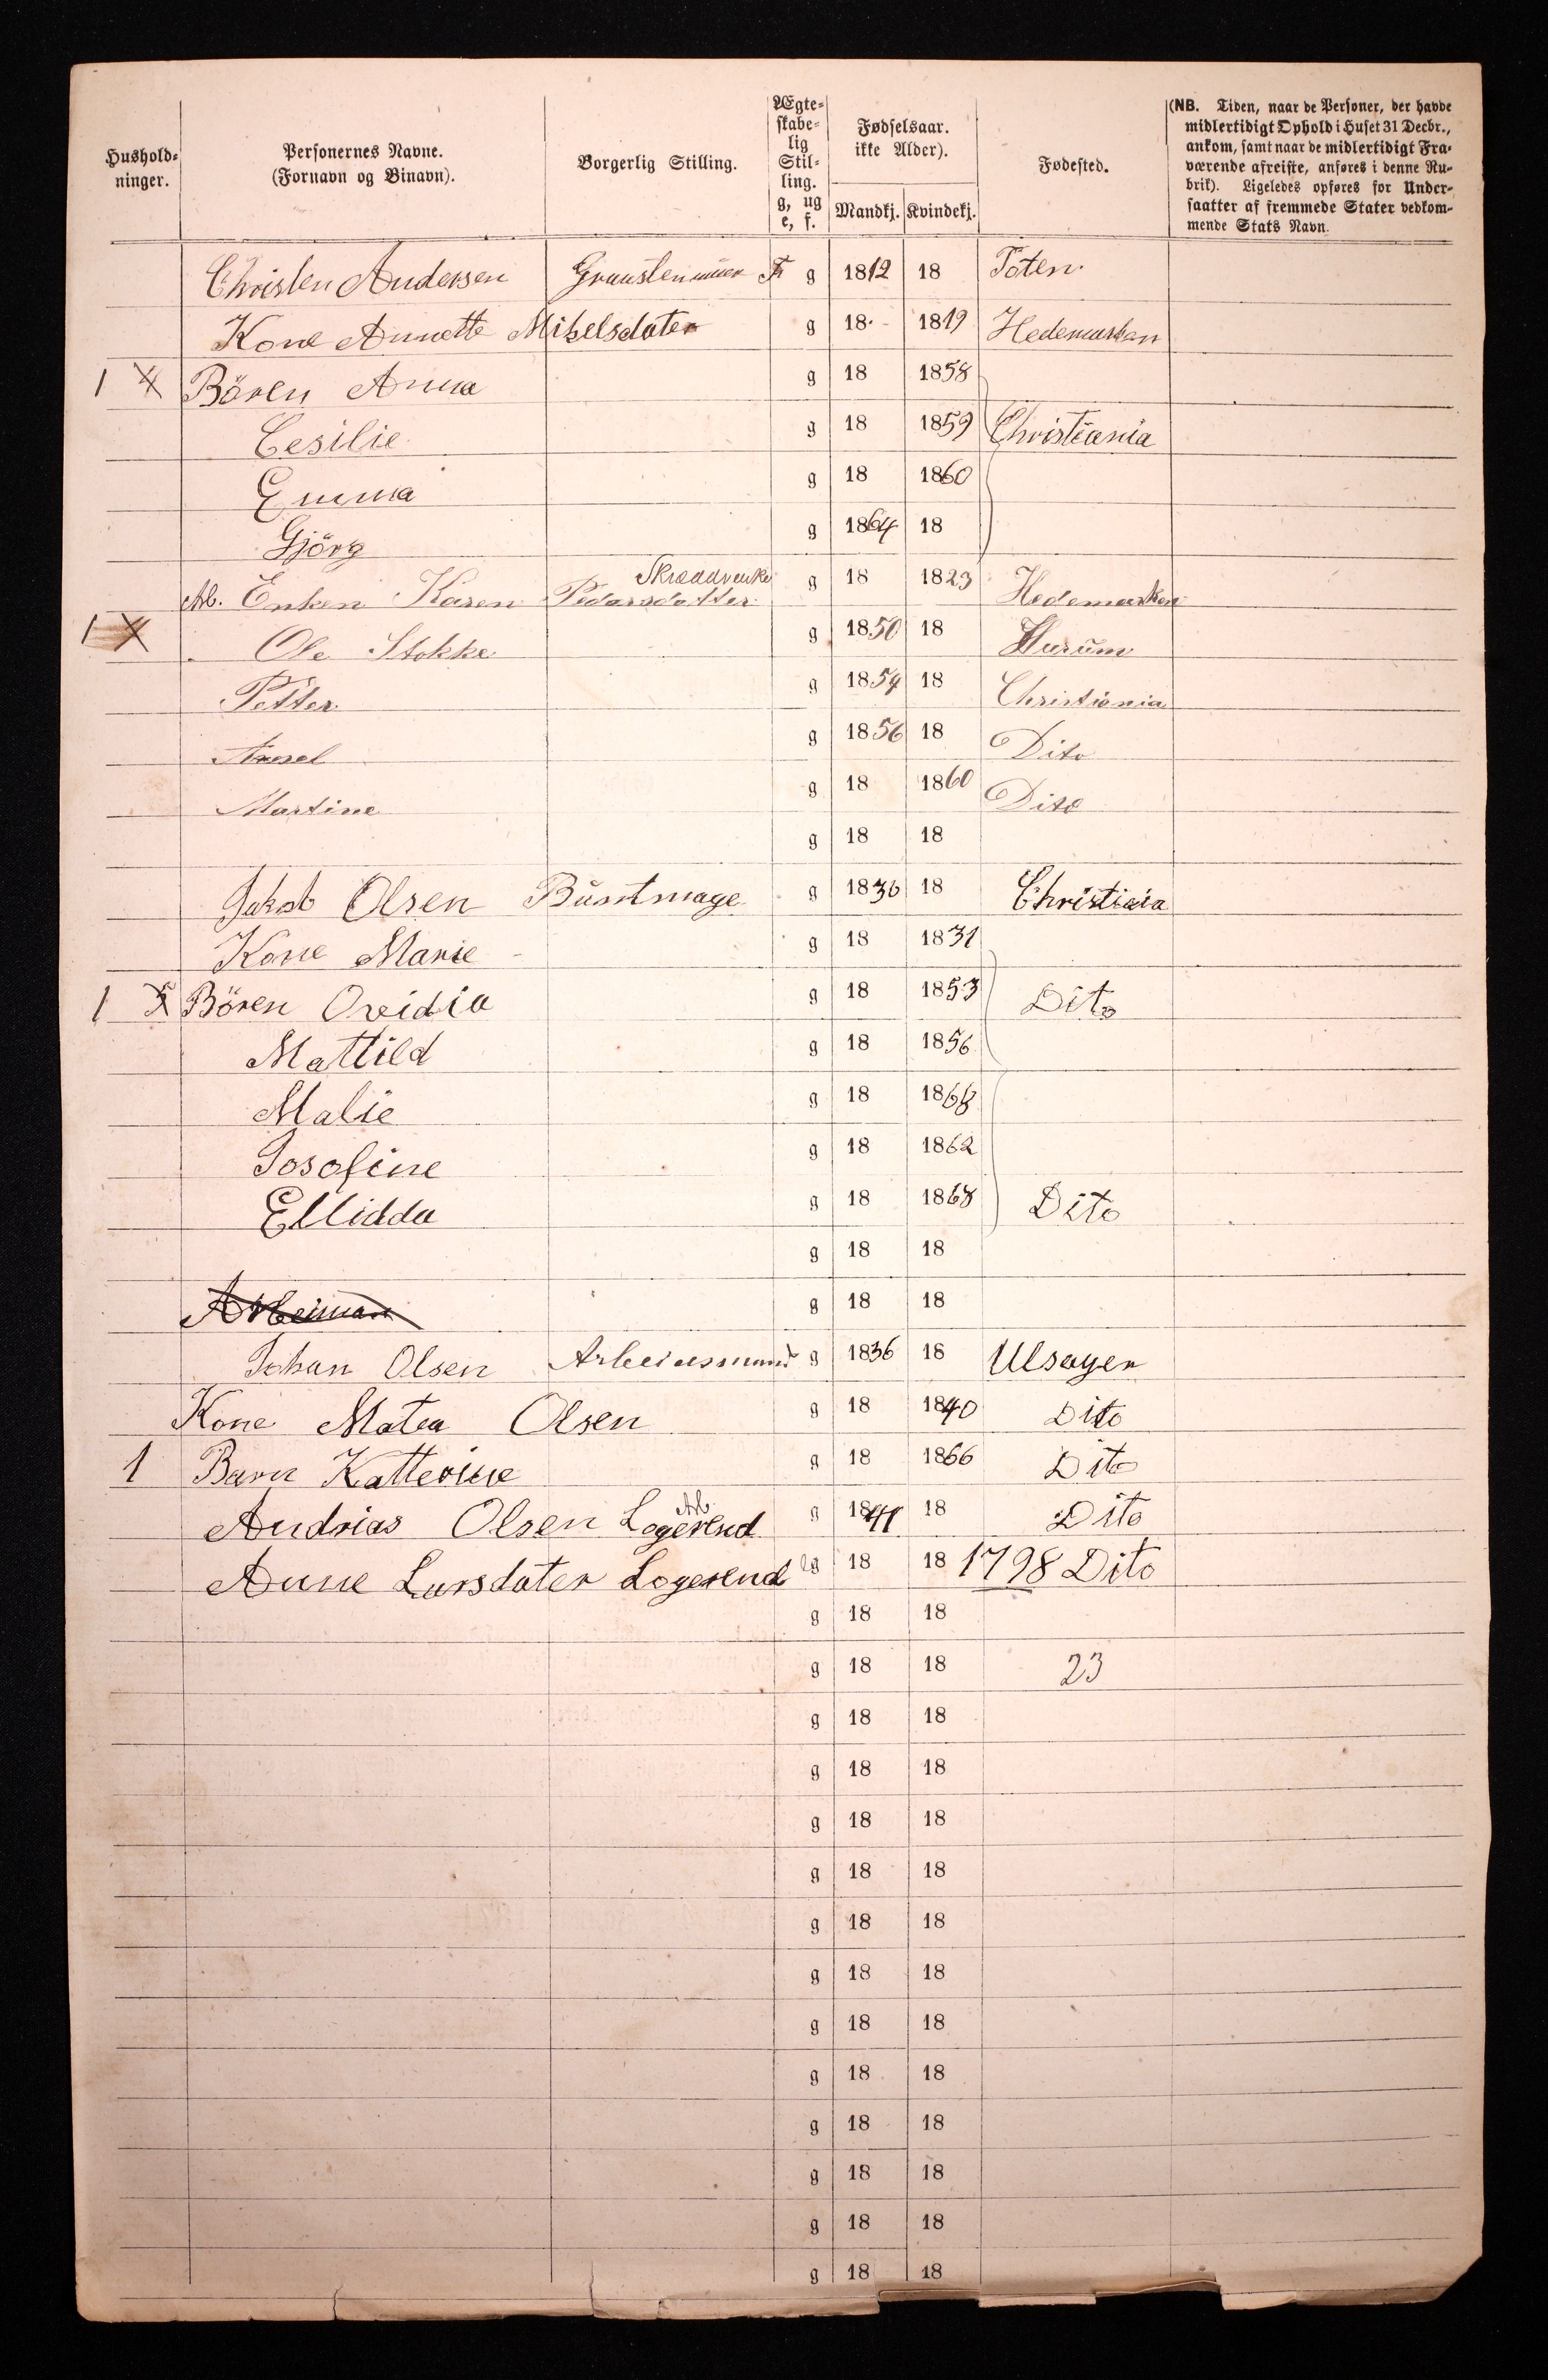 Hushold-
ninger.
Personernes Navne.
(Fornavn og Binavn).
Borgerlig Stilling.
Ægte-
skabe-
lig
Stil-
ling.
g, ug
e, f.
Fødselsaar.
ikke Alder).
Mandkj. Kvindekj.
Fødested.
(NB. Tiden, naar de Personer, der havde
midlertidigt Ophold i Huset 31 Decbr.,
ankom, samt naar de midlertidigt Fra-
værende afreiste, anføres i denne Ru-
brik). Ligeledes opføres for Under-
saatter af fremmede Stater vedkom-
mende Stats Navn.
Christen Andersen g 1812 18 Toten
Kone Annette Mikelsdater g 18 1819 Hedemarken
1 4 Bören Anna g 18 1858
Cesilie g 18 1859 Christiania
Emma g 18 1860
Gjörg g 1864 18
Skræddrenke
Ab. Enken Karen Pedersdatter g 18 1823 Hedemarken
1 Ole Stokke g 1850 18 Hurŭm
Petter g 1854 18 Christiania
g 1856 18 Dito
Martine g 18 1860 Dito
g 18 18
Jakob Olsen Bŭntmage g 1836 18 Christiaia
Kone Marie g 18 1831
1 5 Bören Ovidia g 18 1853 Dito
Mattild g 18 1856
Malie g 18
Josofine g 18 1862
Ellidda g 18 1868 Dito
g 18 18
g 18 18
Johan Olsen Arbeidsmand g 1836 18 Ulsager
Kone Matea Olsen g 18 1840 Dito
1 Barn Katterine g 18 1866 Dito
Ab
Andrias Olsen Logerend g 1841 18 Dito
Anne Larsdater Logerend g 18 18 1798 Dito
g 18 18
g 18 18 23
g 18 18
g 18 18
g 18 18
g 18 18
g 18 18
g 18 18
g 18 18
g 18 18
g 18 18
g 18 18
g 18 18
g 18 18